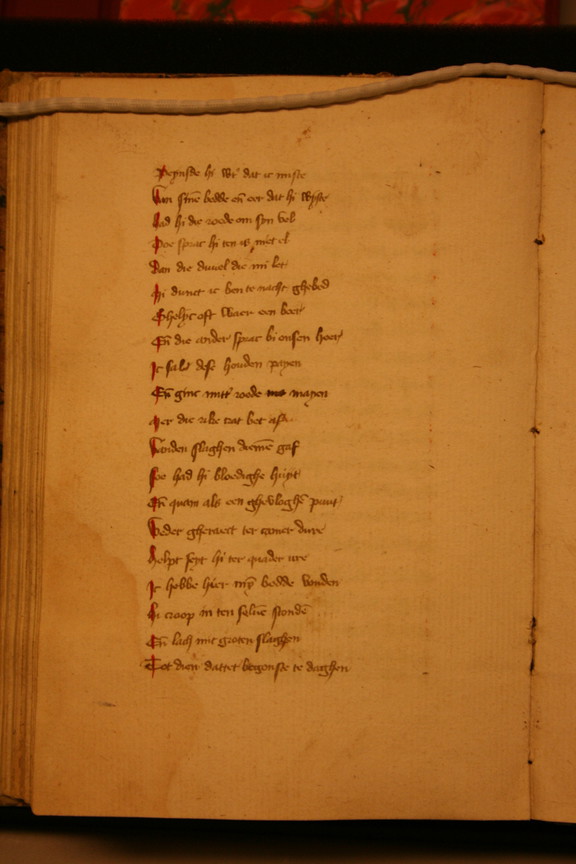 Peynsde hi wt dat ic miste
Van sinē bedde en̄ eer dat hi wiste
Had hi die roede om syn vel
Doe sprac hi ten is niet el
Dan die duuel die mi let
Mi dunct ic ben te nacht ghebed
Ghelyc oft waer een boer
En̄ die ander sprac bi onsen heer
Ic sals dese houden payen
En̄ ginc mitt roede mayen
Eer die ribe trat bet af
Vanden slaghen diemē gaf
Soe had hi bloedighe huyt
En̄ quam als een ghevloghē puut
Weder ghekeert ter camer dure
Helpt seyt hi ter quader ure
Ic hebbe hier myn bedde vonden
Hi croop in ten seluē stondē
En̄ lach mit groten slaghen
Tot dien dattet begonste te daghen